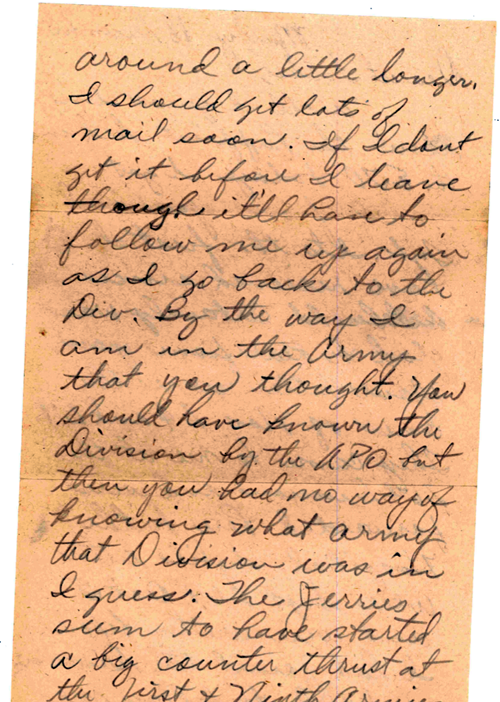 around a little longer.
I should get lots of
mail soon. If I dont
get it before I leave
though it'll have to
follow me up again
as I go back to the
Div. By the way I
am in the army
that you thought. You
should have known the
Division by the APO but
then you had no way of
knowing what army
that Division was in
I guess. The Jerries
seem to have started
a big counter thrust at
the first + Ninth Armies